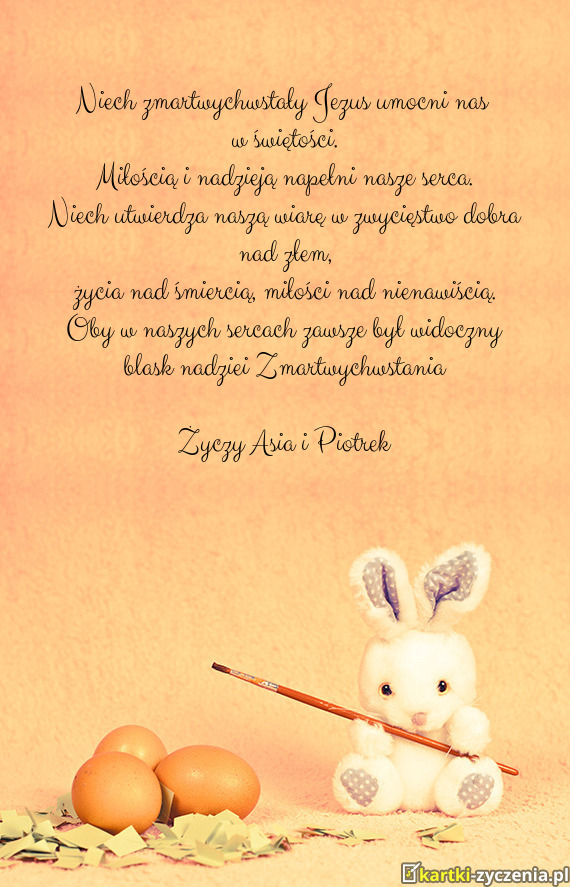 Niech zmartwychwstały Jezus umocni nas
w świętości.
Miłością i nadzieją napełni nasze serca.
Niech utwierdza naszą wiarę w zwycięstwo dobra
nad złem,
życia nad śmiercią, miłości nad nienawiścią.
Oby w naszych sercach zawsze był widoczny
blask nadziei Zmartwychwstania
Życzy Asia i Piotrek
kartki-zyczenia.pl